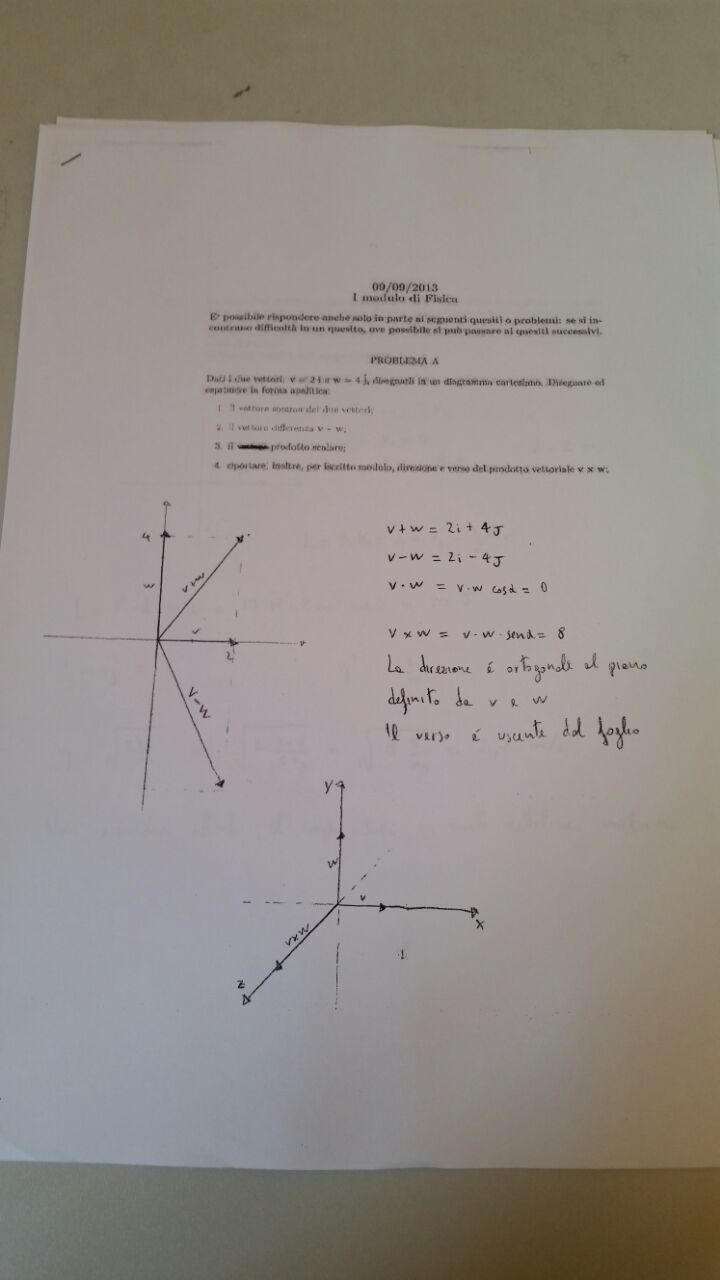 09/09/2013
I modulo di Fisica
E' possibile rispondere anche solo in parte ai seguenti quesiti o problemi: se si in-
contrano difficoltà in un quesito, ove possibile si può passare ai quesiti successivi.
PROBLEMA A
Dati i due vettori: v = 2 i e w = 4 j, disegnarli in un diagramma cartesiano. Disegnare ed
esprimere in forma analitica:
1. il vettore somma dei due vettori;
2. il vettore differenza v - w;
3. il prodotto scalare;
4. riportare, inoltre, per iscritto modulo, direzione e verso del prodotto vettoriale v × w;
4
w
v+w
v
2
v-w
v+w = 2i + 4J
v-w = 2i - 4J
v·w = v·w cosα = 0
v×w = v·w·senα = 8
La direzione é ortogonale al piano
definito da v e w
Il verso é uscente dal foglio
y
w
v
x
v×w
z
1